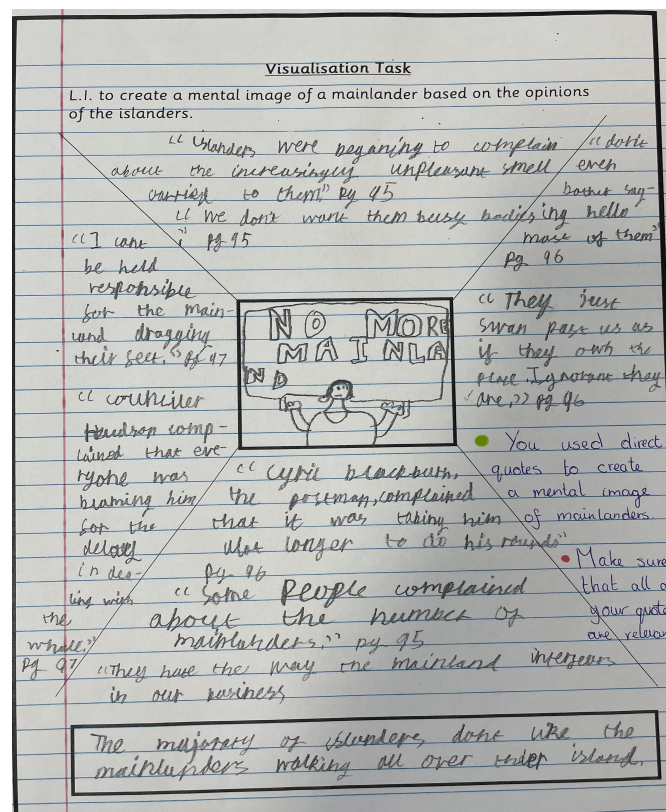 Visualisation Task
L.I. to create a mental image of a mainlander based on the opinions
of the islanders.
"Islanders were beganing to complain
about the increasingly unpleasant smell even
carried to them." pg 95
"we don't want them busy bodies
" pg 95
"dont
bother say-
ing hello
most of them"
pg 96
"I cant
be held
responsible
for the main-
land dragging
their feet." pg 97
"They just
swan past us as
if they own the
place. Ignorant they
are," pg 96
NO MORE
MAINLA
ND
"councller
Hudson comp-
lained that eve-
ryone was
blaming him
for the
delay
in dea-
ling with
the
whale."
pg 97
"cyril blackburn,
the postman, complained
that it was taking him
alot longer to do his rounds"
pg 96
"some People complained
about the number of
mainlanders." pg 95
"They hate the way the mainland
in our business
You used direct
quotes to create
a mental image
of mainlanders.
Make sure
that all o
your quote
are relevan
The majoraty of islanders dont like the
mainlanders walking all over their island.